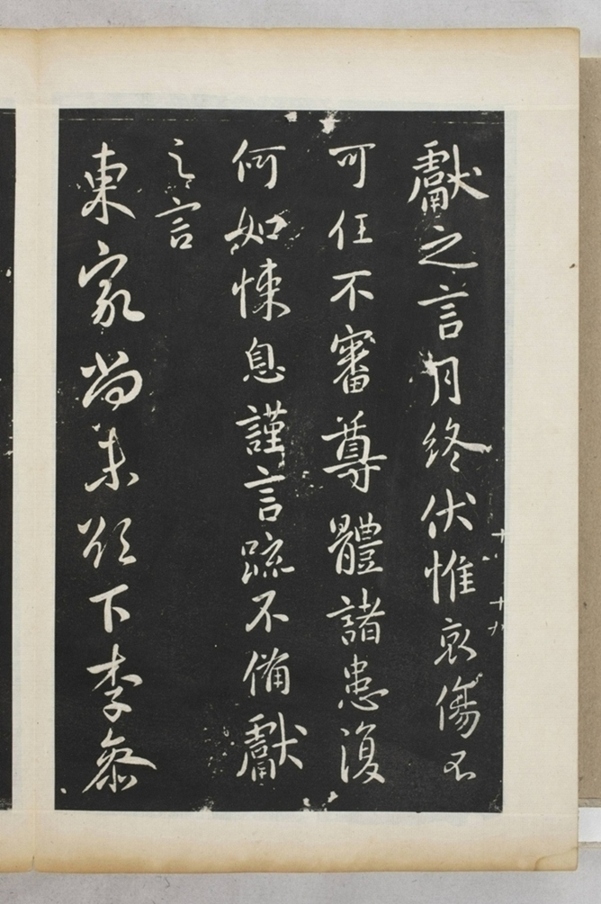 獻之言月終伏惟哀傷不
可任不審尊體諸患復
何如悚息謹言疏不備獻
之言
東家尚未欲下李參
十八
十九